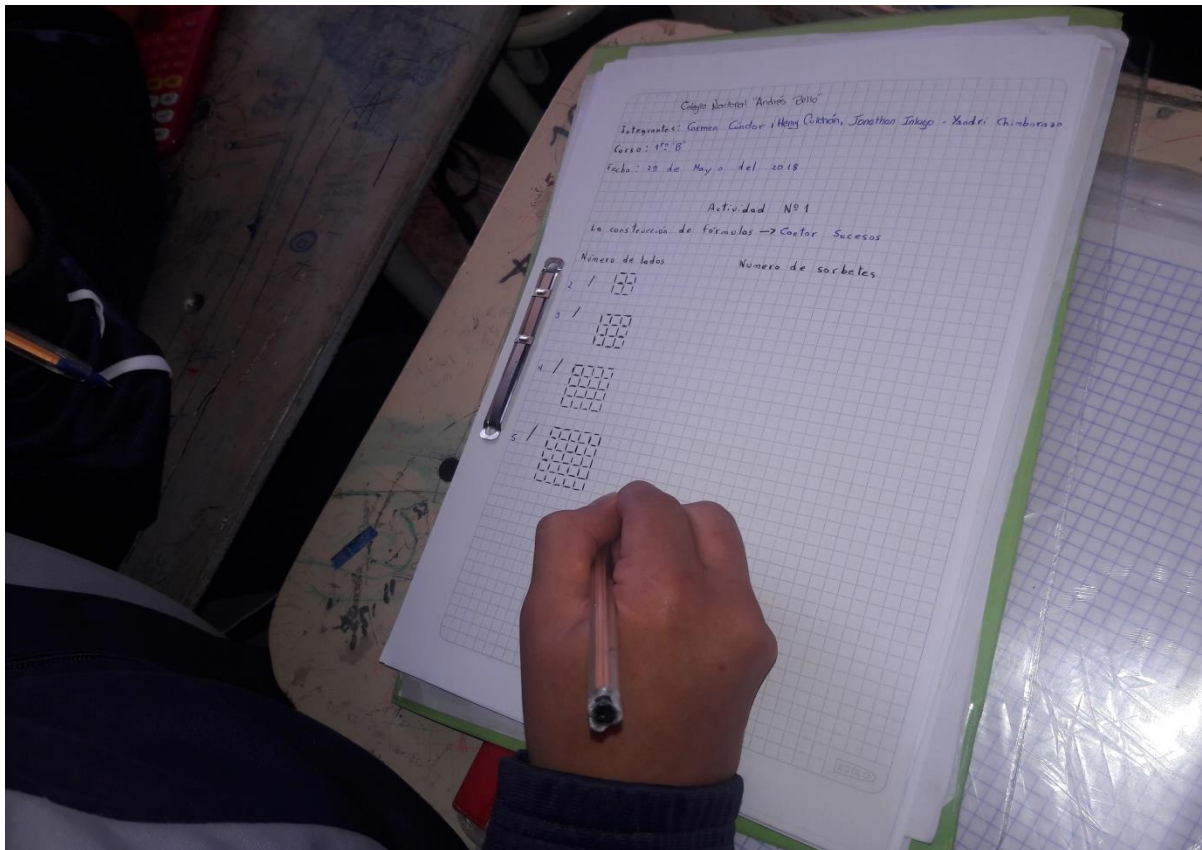 Colegio Nacional "Andrés Bello"
Integrantes: Carmen Cóndor, Henry Culchán, Jonathan Inlago - Yandri Chimborazo
Curso: 1ro "B"
Fecha: 29 de Mayo del 2018
Actividad Nº 1
La construcción de fórmulas → Contar Sucesos
Número de lados Numero de sorbetes
2 /
3 /
4 /
5 /